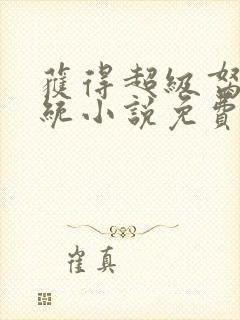 獲得超級努
統小說免費
崔真